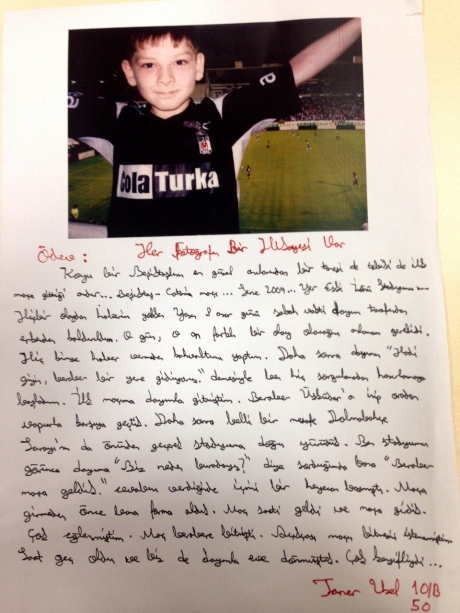 Cola Turka
Ödev : Her Fotoğrafın Bir Hikayesi Var
Koyu bir Beşiktaşlının en güzel anılarından bir tanesi de tabiki de ilk
maça gittiği andır... Beşiktaş - Catania maçı... Sene 2009... Yer Eski İnönü Stadyumu...
Hiçbir olaydan haberim yoktu. Yazı sabah vakti dayım tarafından
erkenden kaldırıldım. O gün, o an farklı bir olay olacağını anlamam gerekirdi.
Hiç kimse haber vermeden kahvaltımı yaptım. Daha sonra dayımın "Hadi
giyin, beraber bir yere gidiyoruz." demesiyle ben hiç sorgulamadan hazırlanmaya
başladım. İlk maçıma dayımla gitmiştim. Beraber Üsküdar'a inip oradan
vapurla karşıya geçtik. Daha sonra belli bir mesafe Dolmabahçe
Sarayı'nın da önünden geçerek stadyuma doğru yürüdük. Ben stadyumu
görünce dayıma "Biz neden buradayız?" diye sorduğumda bana "Beraber
maça geldik." cevabını verdiğinde içimi bir heyecan basmıştı. Maça
girmeden önce bana forma aldık. Maç saati geldi ve maça girdik.
Çok eğlenmiştim. Maç berabere bitmişti. Açıkçası maçın bitmesini istememiştim
Saat geç oldu ve biz de dayımla eve dönmüştük. Çok keyifliydi...
Taner Ubel 10/B
50